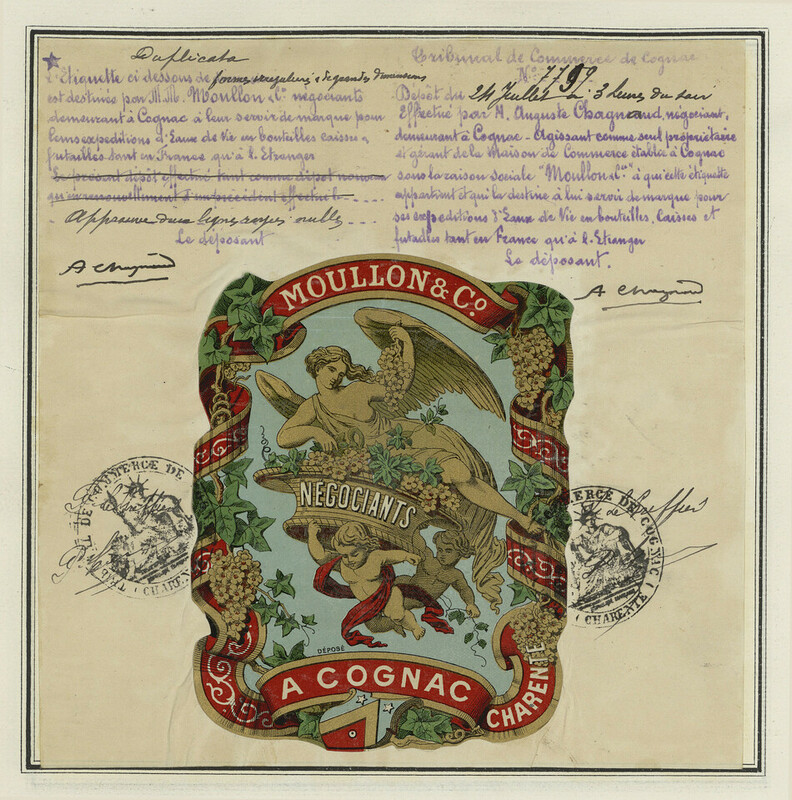 Duplicata
L'Etiquette ci dessous de formes irregulieres & de grandes dimensions
est destinée par M.M. Moullon & Cie négociants
demeurant à Cognac à leur servir de marque pour
leurs expeditions d'Eaux de Vie en bouteilles caisses &
futailles tant en France qu'à l'Etranger
Le présent dépôt effectué tant comme dépôt nouveau
qu'en renouvellement d'un précédent effectué le
Approuvé deux lignes rayées nulles
Le déposant
A Chagnaud
Tribunal de Commerce de Cognac
No 7799
Dépôt du 24 Juillet à 3 heures du soir
Effectué par M. Auguste Chagnaud, négociant,
demeurant à Cognac - Agissant comme seul propriétaire
et gérant de la Maison de Commerce établie à Cognac
sous la raison sociale "Moullon & Cie" à qui cette étiquette
appartient et qui la destine à lui servir de marque pour
ses expeditions d'Eaux de Vie en bouteilles, Caisses et
futailles tant en France qu'à l'Etranger
Le déposant.
A Chagnaud
MOULLON & Co
NÉGOCIANTS
DÉPOSÉ
A COGNAC
CHARENTE
TRIBUNAL DE COMMERCE DE
(CHARENTE)
le Greffier
COMMERCE DE COGNAC
(CHARENTE)
le Greffier